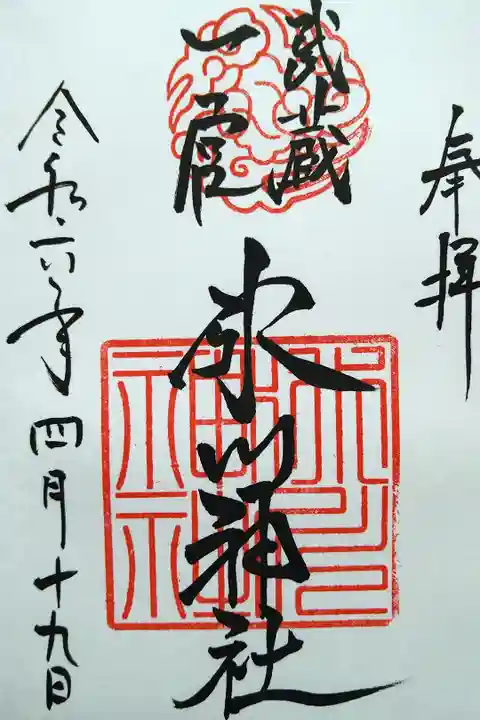 奉拝
武蔵
一宮
氷川神社
令和六年四月十九日